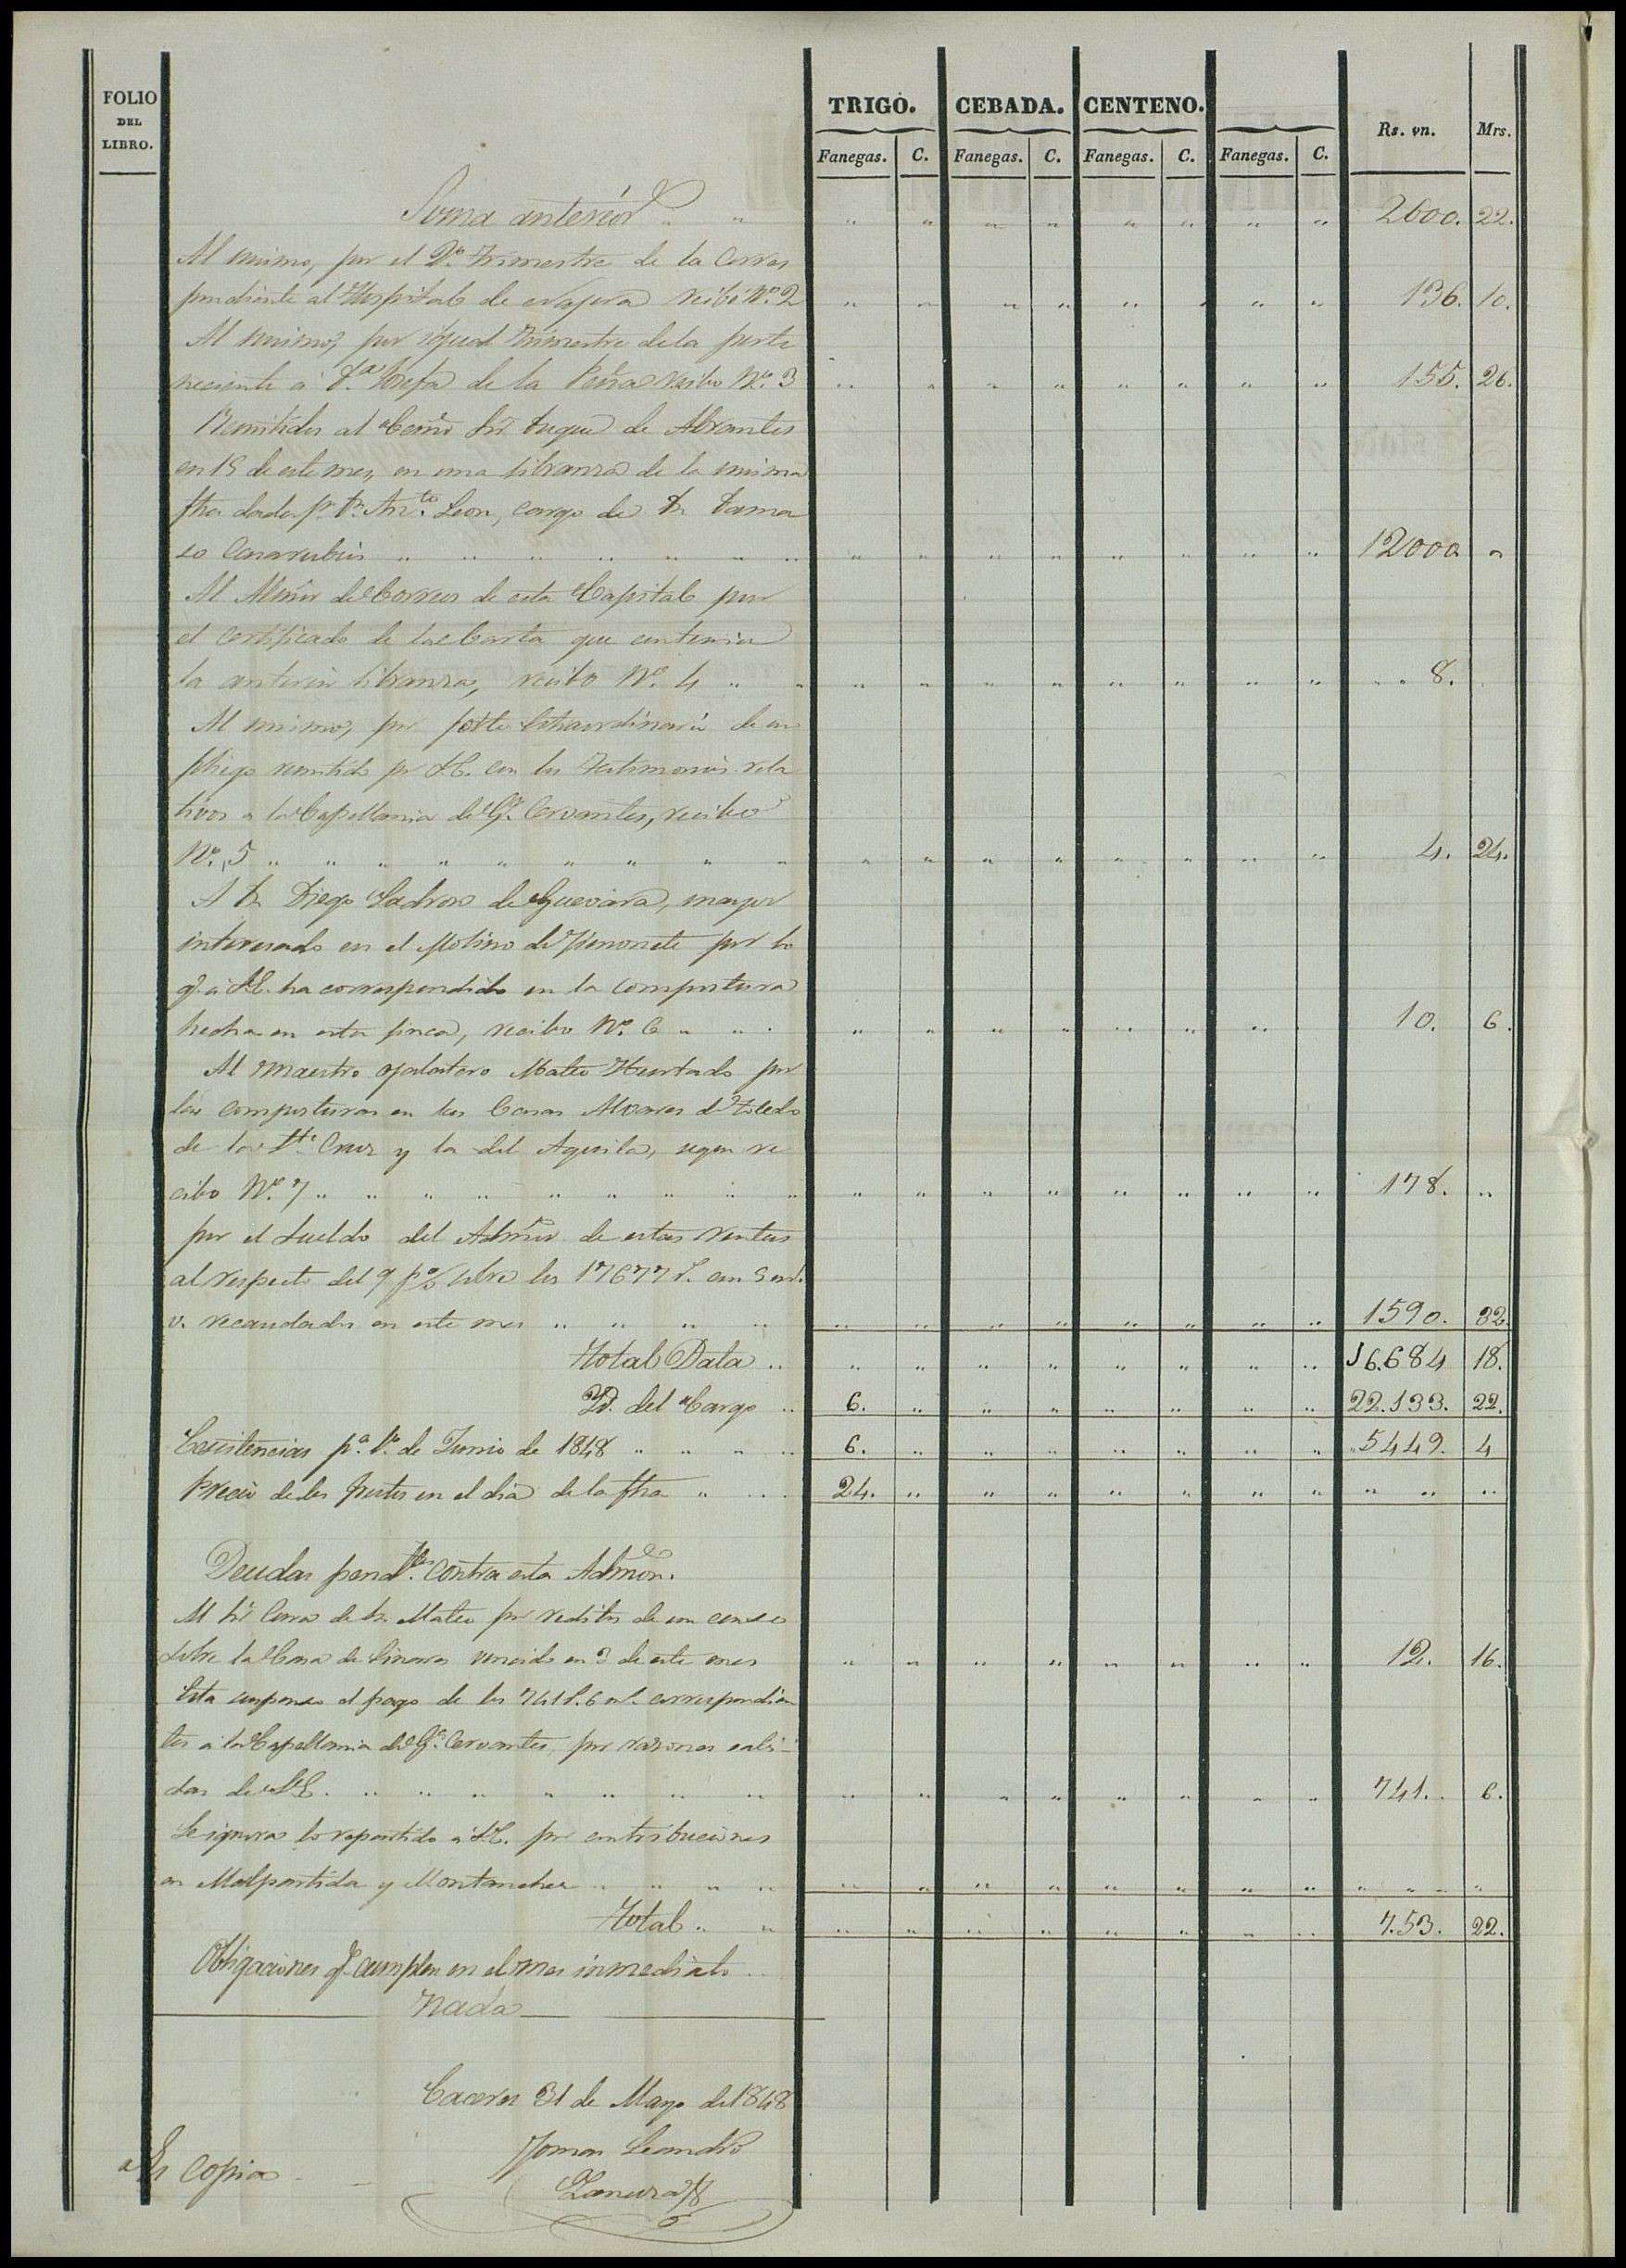 FOLIO DEL LIBRO. TRIGO. CEBADA. CENTENO. Rs. vn. Mrs.
Fanegas. C. Fanegas. C. Fanegas. C. Fanegas. C.
Suma anterior 2600. 22.
Al mismo, por el 2º trimestre de la Corres
pondiente al Hospital de recibo Nº 2 136. 10.
Al mismo, por igual trimestre de la perte
neciente a Dª Josefa de la Peña recibo Nº 3 155. 26.
Remitidos al Excmo Sr. Duque de Abrantes
en 15 de este mes, en una libranza de la misma
fha dada pr Dn Anto Leon, cargo de Dn Dama
so Casarrubios 12000
Al Admor de Correos de esta Capital por
el certificado de la Carta que contenia
la anterior libranza, recibo Nº 4 8.
Al mismo, por porte extraordinario de un
pliego remitido pr S.E. con los testimonios rela
tivos a la Capellania de Gº Cervantes, recibo
Nº 5 4. 24.
A Dn Diego Ladron de Guevara, mayor
interesado en el Molino de por lo
q. a S.E. ha correspondido en la compostura
hecha en esta finca, recibo Nº 6 10. 6.
Al maestro Mateo Hurtado por
las composturas en las Casas Alvares de Toledo
de la Sta Cruz y la del Aguila, segun re
cibo Nº 7 178.
por el sueldo del Admor de estas rentas
al respecto del 9 p% sobre los 17677 r. con
v. recaudados en este mes 1590. 32.
Total Data 16.684 18.
Yd. del Cargo 6. 22.133. 22.
Existencias pª 1º de Junio de 1848 6. 5449. 4
Precio de los frutos en el dia de la fha 24.
Deudas pendtes contra esta Admon.
Al Sr Cura de Sn Mateo por reditos de un censo
sobre la Casa de vencido en 3 de este mes 12. 16.
Esta suspenso el pago de los 741 r. 6 m. correspondien
tes a la Capellania de Gº Cervantes, por razones sabi-
das de S.E. 741. 6.
Se ignora lo repartido a S.E. por contribuciones
en Malpartida y Montanchez
Total 7.53. 22.
Obligaciones q. cumplen en el mes inmediato
Nada
Caceres 31 de Mayo de 1848
Leandro
Es copia